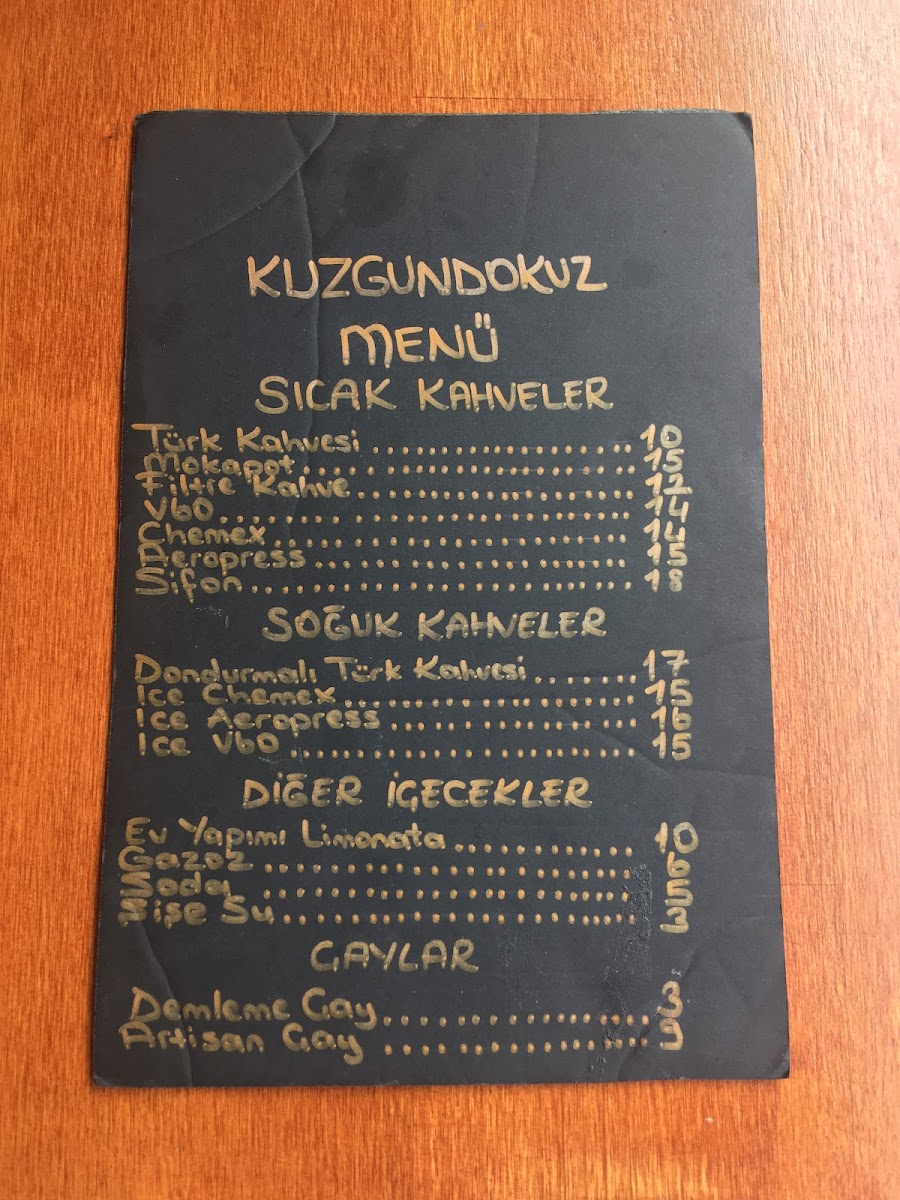 KUZGUNDOKUZ
MENÜ
SICAK KAHVELER
Türk Kahvesi ........................ 10
Mokapot ........................ 15
Filtre Kahve ........................ 12
V60 ........................ 14
Chemex ........................ 14
Aeropress ........................ 15
Sifon ........................ 18
SOĞUK KAHVELER
Dondurmalı Türk Kahvesi ....... 17
Ice Chemex ........................ 15
Ice Aeropress ........................ 16
Ice V60 ........................ 15
DİĞER İÇECEKLER
Ev Yapımı Limonata ............ 10
Gazoz ........................ 6
Soda ........................ 5
Şişe Su ........................
ÇAYLAR
Demleme Çay ........................ 3
Artisan Çay ........................